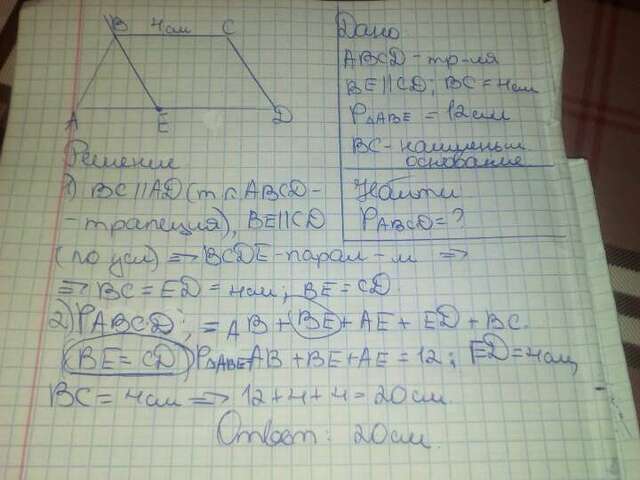 B 4см C
A E D
Дано
ABCD - тр-ия
BE || CD; BC = 4см
P△ABE = 12 см
BC - наименьш.
основание
Найти
PABCD = ?
Решение
1) BC || AD (т.к. ABCD -
- трапеция), BE || CD
(по усл) => BCDE - парал - м =>
=> BC = ED = 4см; BE = CD.
2) PABCD; = AB + BE + AE + ED + BC.
BE = CD P△ABE = AB + BE + AE = 12; ED = 4см,
BC = 4см => 12 + 4 + 4 = 20см.
Ответ: 20см.